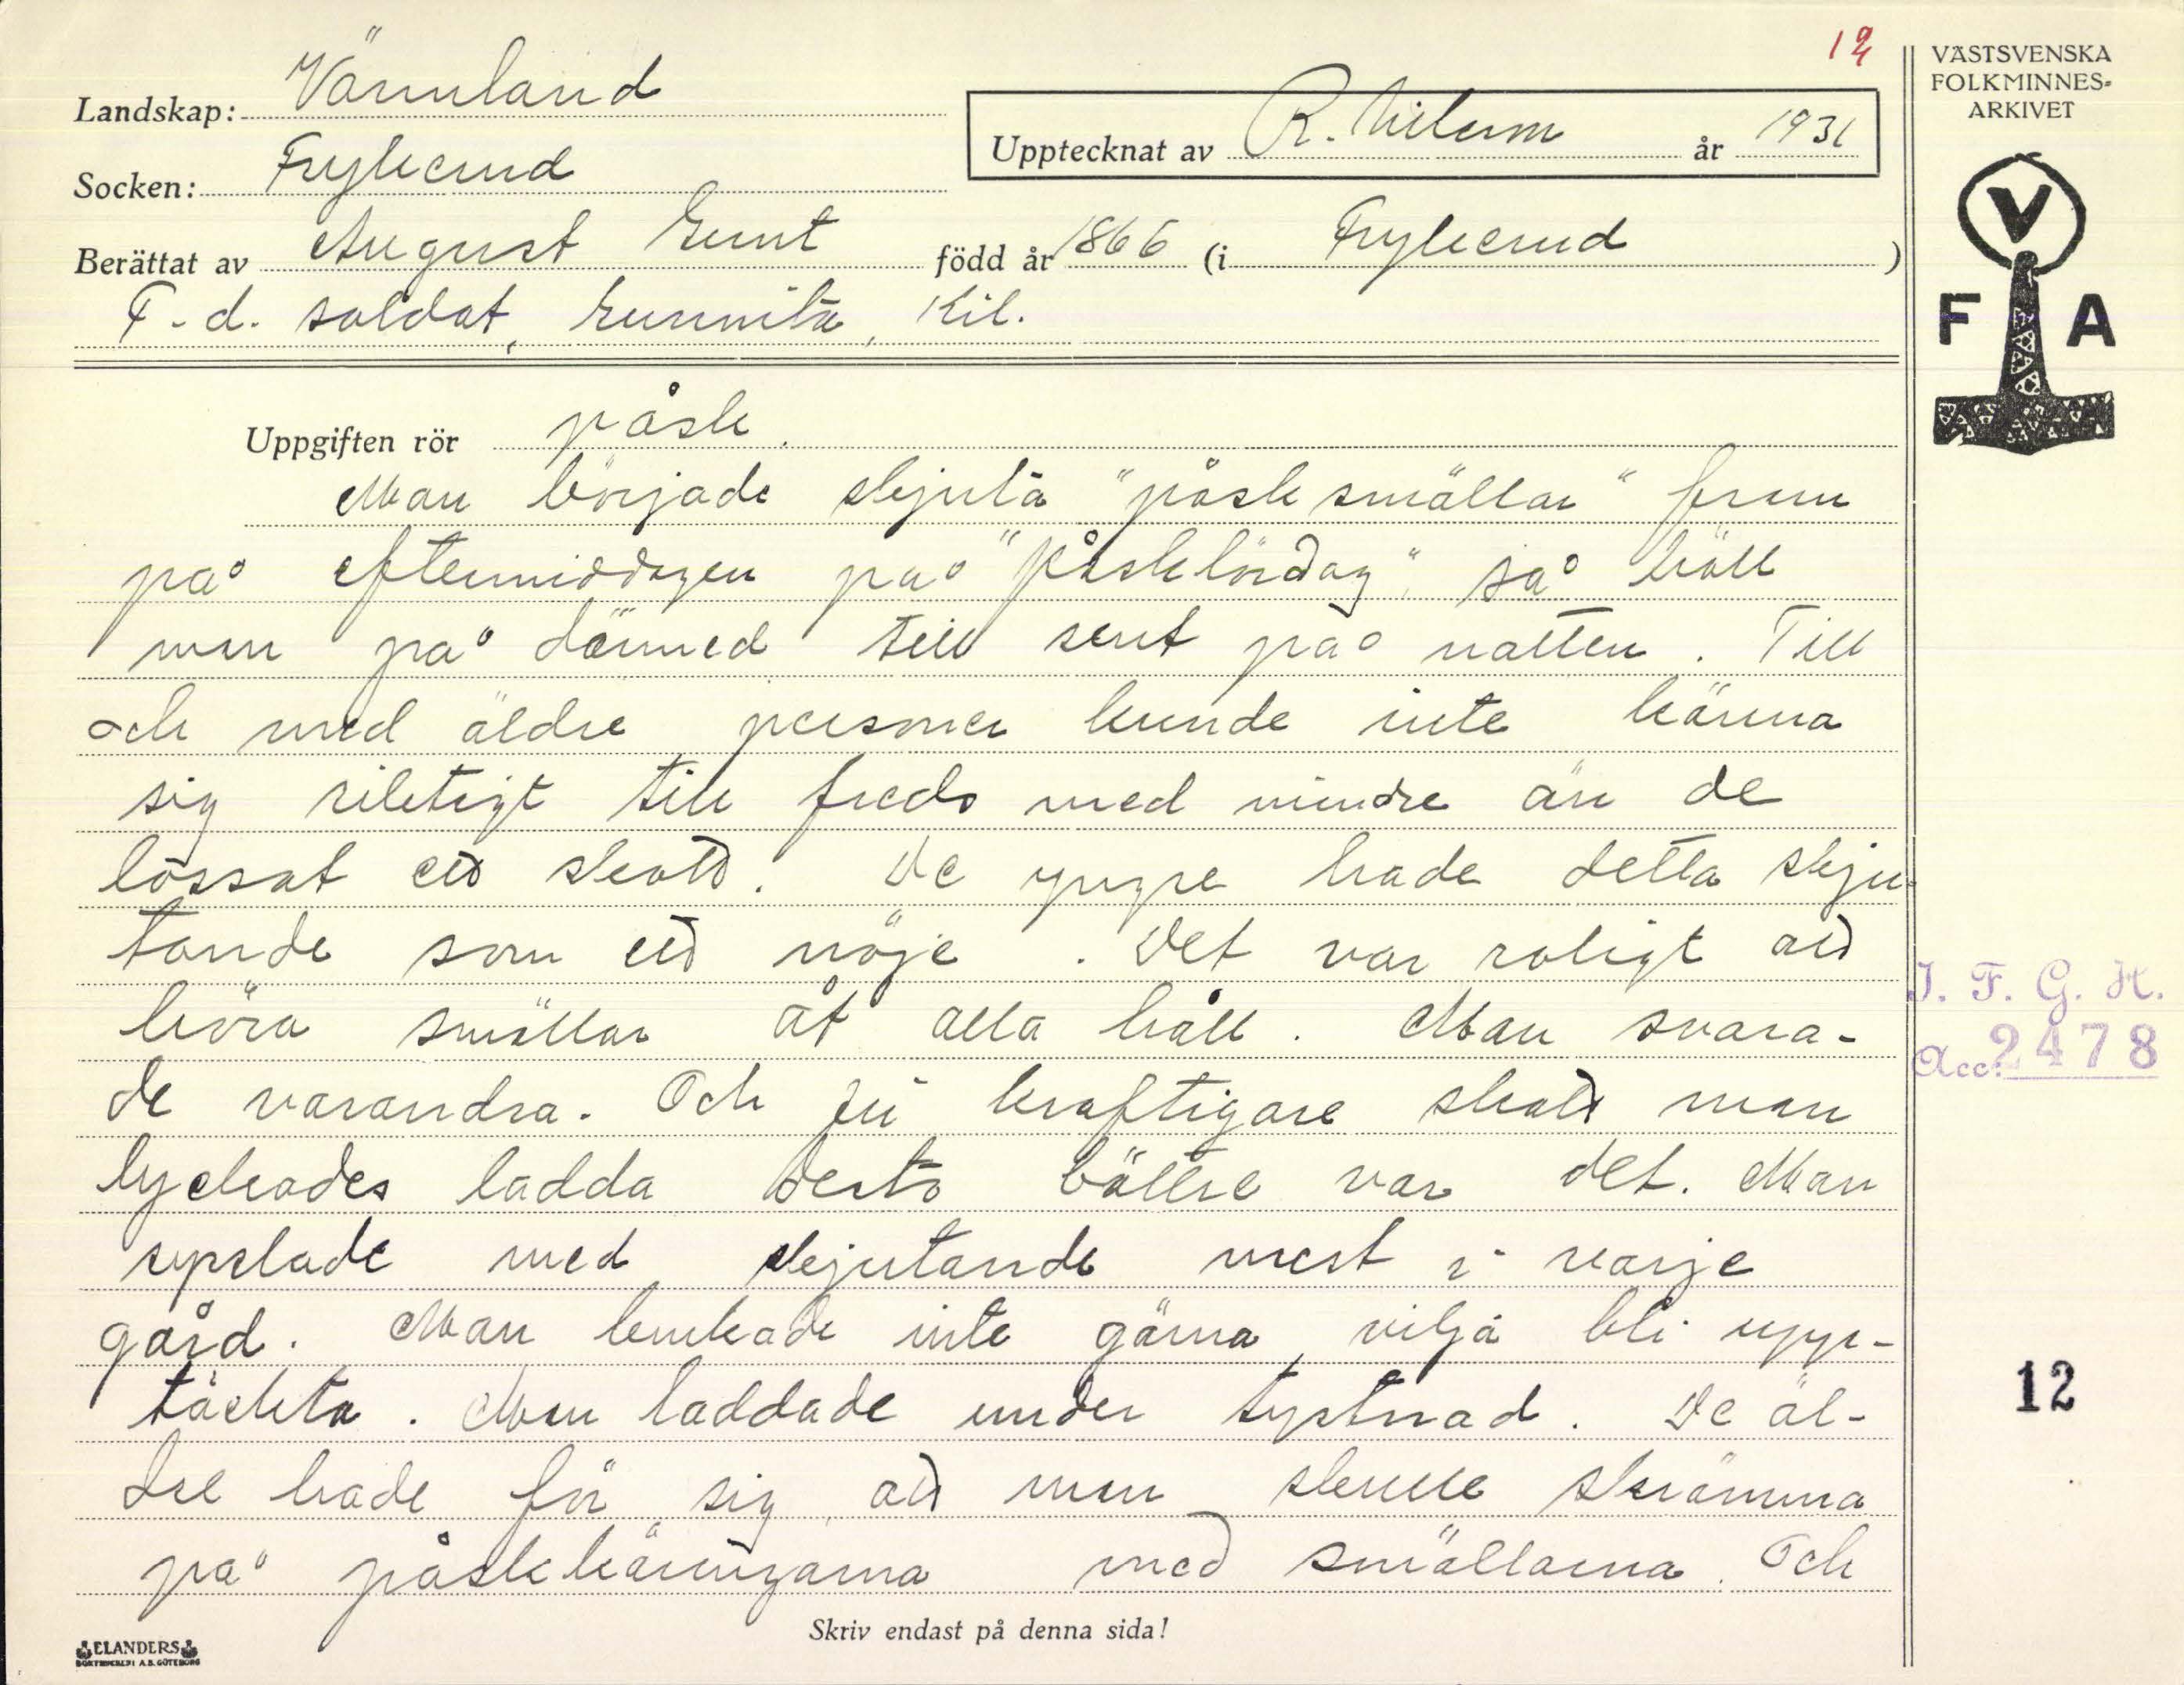 12
VÄSTSVENSKA
FOLKMINNES-
ARKIVET
Landskap: Värmland
Upptecknat av R. Nilsson år 1931
Socken: Frykerud
Berättat av August Gunt född år 1866 (i Frykerud)
F.d. soldat, Kil.
V
F A
Uppgiften rör påsk.
Man började skjuta "påsksmällar" fram
på eftermiddagen på "påsklördag", så höll
man på därmed till sent på natten. Till
och med äldre personer kunde inte känna
sig riktigt till freds med mindre än de
lossat ett skott. De yngre hade detta skju-
tande som ett nöje. Det var roligt att
höra smällar åt alla håll. Man svara-
de varandra. Och ju kraftigare skott man
lyckades ladda desto bättre var det. Man
sysslade med skjutande mest i varje
gård. Man brukade inte gärna vilja bli upp-
täckta. Man laddade under tystnad. De äl-
dre hade för sig att man skulle skrämma
på påskkäringarna med smällarna. Och
J. F. G. H.
Acc. 2478
12
Skriv endast på denna sida!
ELANDERS
BOKTRYCKERI A.B. GÖTEBORG